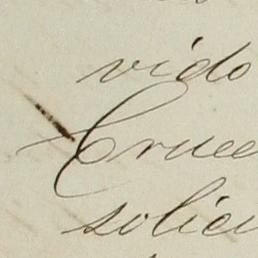 vido
Cruce
solici